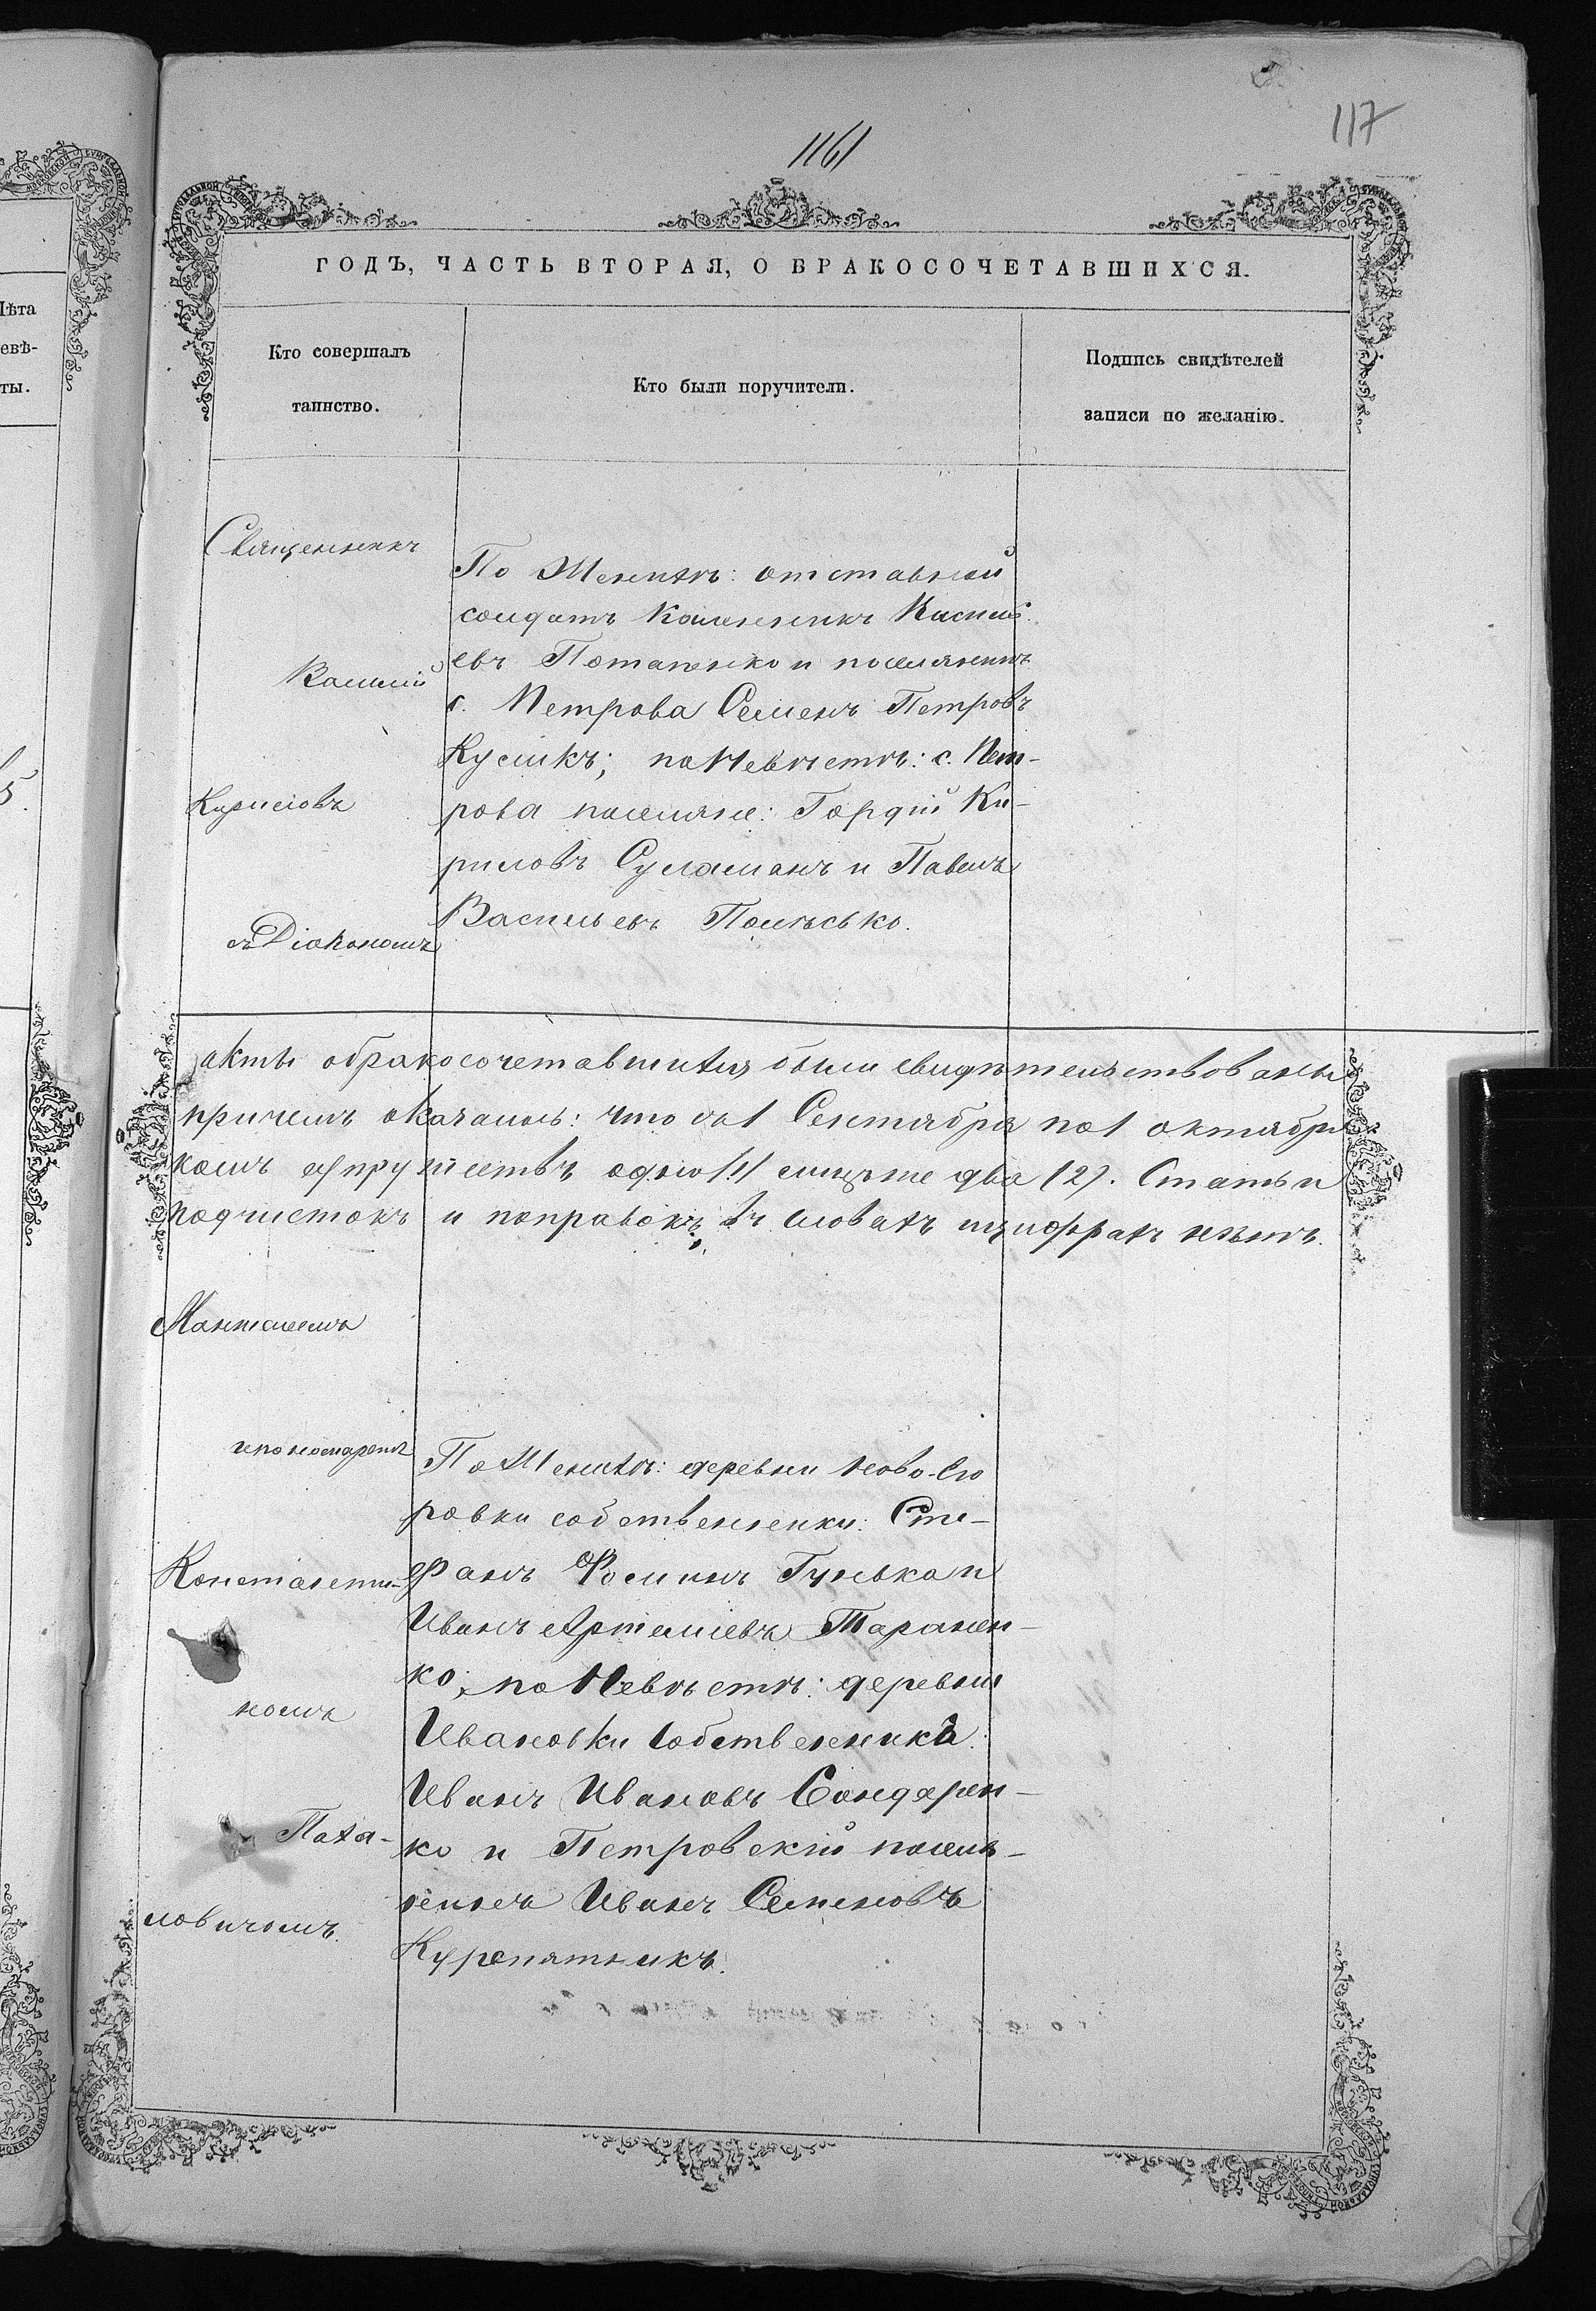 117
116
ГОДЪ, ЧАСТЬ ВТОРАЯ, О БРАКОСОЧЕТАВШИХСЯ.
Кто совершалъ
таинство.
Кто были поручители.
Подпись свидѣтелей
записи по желанію.
Лѣта
евѣ-
ты.
Священникъ
Василій
Кириловъ
съ Діакономъ
По Женихѣ: отставной
солдатъ Василь
евъ Потапенко и поселянинъ
с. Петрова Семенъ Петровъ
Кусикъ; по Невѣстѣ: с. Пет-
рова поселяне: Гордій Ки-
риловъ Суламанъ и Павелъ
Васильевъ
акты о бракосочетавшихся были свидѣтельствованы
причемъ оказалось: что съ 1 Сентября по 1 октября
комъ супружествѣ одно /1/ лицъ же два (2). Статьи
подчистокъ и поправокъ въ словахъ и цифрахъ нѣтъ.
Пантелеемъ
и пономаремъ
Константи-
номъ
Паха-
ловичомъ.
По Женихѣ: деревни Ново-Его
ровки собственники: Сте-
фанъ Фоминъ Гунька и
Иванъ Артемьевъ Таранен-
ко; по Невѣстѣ: деревни
Ивановки собственникъ
Иванъ Ивановъ Бондарен-
ко и Петровскій поселя-
нинъ Иванъ Семеновъ
Курепятникъ.